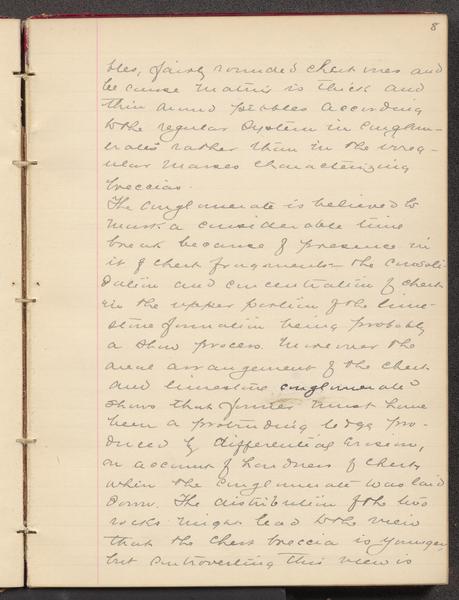 8
bles, fairly rounded chert ones and
because matrix is thick and
thin around pebbles according
to the regular system in conglom-
erates rather than in the irreg-
ular masses characterizing
breccias.
The conglomerate is believed to
mark a considerable time
break because of presence in
it of chert fragments – the consoli-
dation and concentration of chert
in the upper portion of the lime-
stone formation being probably
a slow process. Moreover the
areal arrangement of the chert
and limestone conglomerates
shows that former must have
been a protruding ledge pro-
duced by differential erosion,
on account of hardness of chert,
when the conglomerate was laid
down. The distribution of the two
rocks might lead to the view
that the chert breccia is younger,
but controverting this view is